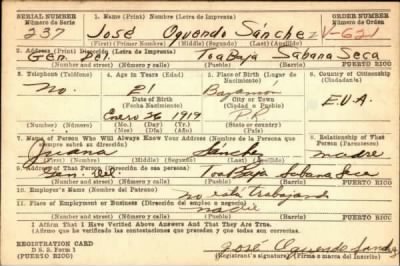 SERIAL NUMBER
Número de Serie
237
1. Name (Print) (Nombre) (Letra de Imprenta)
José Oquendo Sánchez
(First) (Primer Nombre) (Middle) (Segundo) (Last) (Apellido)
ORDER NUMBER
Número de Orden
V-621
2. Address (Print) (Dirección) (Letra de Imprenta)
Gen. Del. Toa Baja Sabana Seca
(Number and street) (Número y calle) (Town) (Pueblo) (Barrio) PUERTO RICO
3. Telephone (Teléfono)
No.
(Number) (Número)
4. Age in Years (Edad)
21
Date of Birth
(Fecha Nacimiento)
Enero 26 1919
5. Place of Birth (Lugar de Nacimiento)
Bayamon
City or Town
(Ciudad o Pueblo)
P.R.
(State or country)
6. Country of Citizenship
(Ciudadanía)
E.U.A.
7. Name of Person Who Will Always Know Your Address (Nombre de la Persona que siempre sabrá su dirección)
Juana Sánchez
(First) (Primer Nombre) (Middle) (Segundo) (Last) (Apellido)
8. Relationship of That Person (Parentesco)
madre
9. Address of That Person (Dirección de esa persona)
Gen. Del. Toa Baja Sabana Seca
(Number and street) (Número y calle) (Town) (Pueblo) (Barrio) PUERTO RICO
10. Employer's Name (Nombre del Patrono)
no está trabajando
11. Place of Employment or Business (Dirección del empleo o negocio)
(Number and street) (Número y calle) (Town) (Pueblo) (Barrio) PUERTO RICO
I Affirm That I Have Verified Above Answers And That They are True.
(Afirmo que he verificado las contestaciones que preceden y que todas son correctas.
REGISTRATION CARD
D S S. Form 1
(PUERTO RICO)
José Oquendo Sanchez
(Registrant's signature) (Firma o marca del Inscrito)